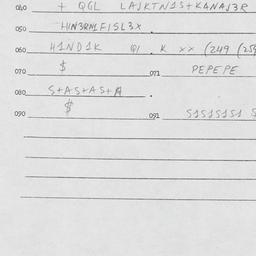 040 + QGL LAJKTNJS+KANAJ3R
050 HIN3RN1FISL3X
060 H1ND1K Q1 . K xx (249 (25
070 $ 071 PEPEPE
080 S+AS+AS+A .
090 $ 091 S1S1S1S1 S